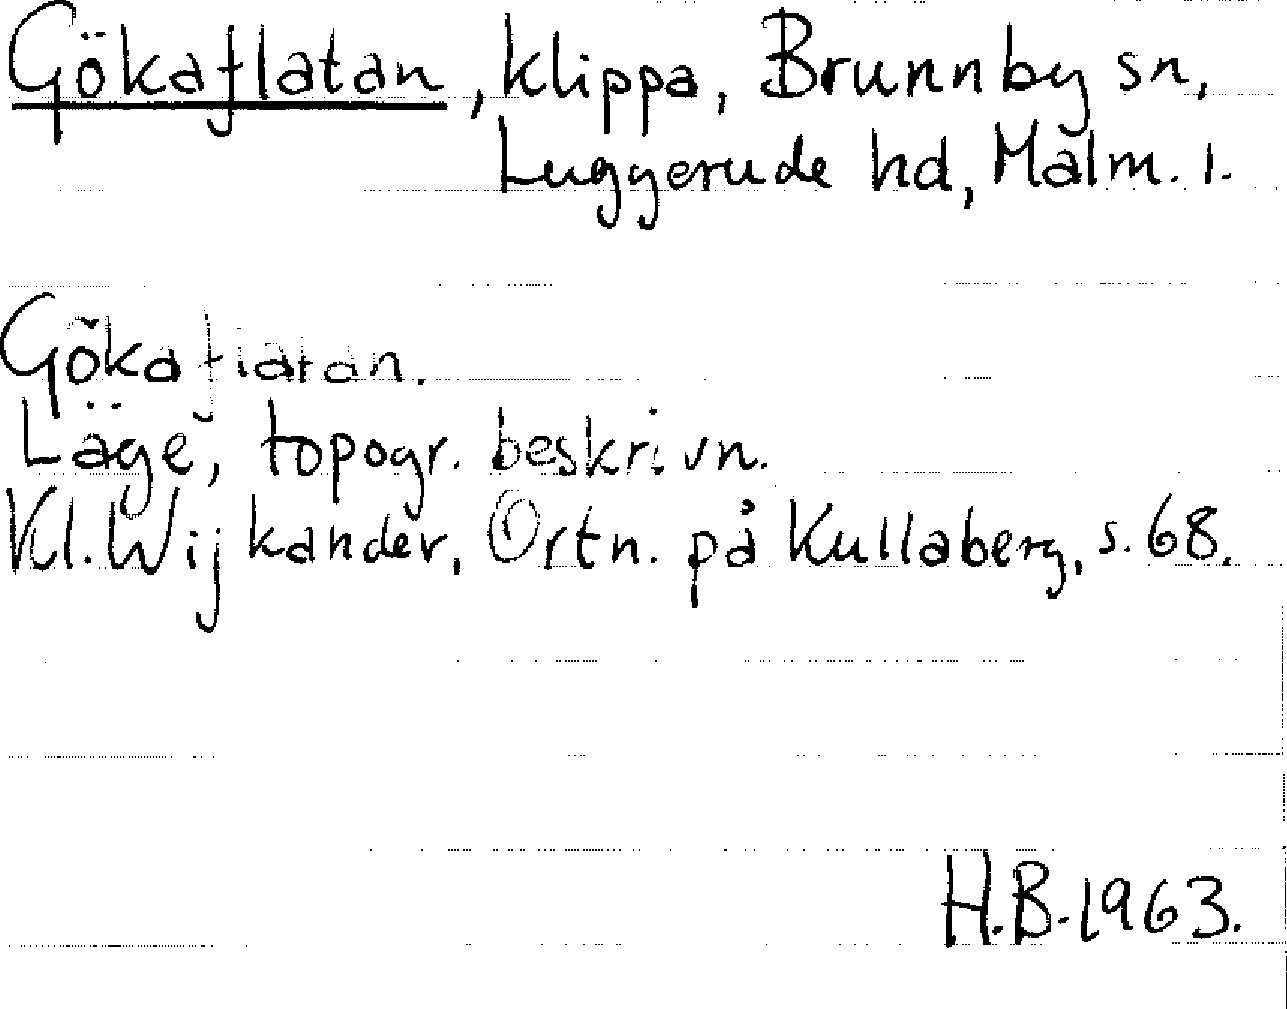 Gökaflatan, klippa, Brunnby sn,
Luggerude hd, Malm. l.
Gökaflatan.
Läge, topogr. beskrivn.
Vl. Wijkander, Ortn. på Kullaberg, s. 68.
H.B. 1963.